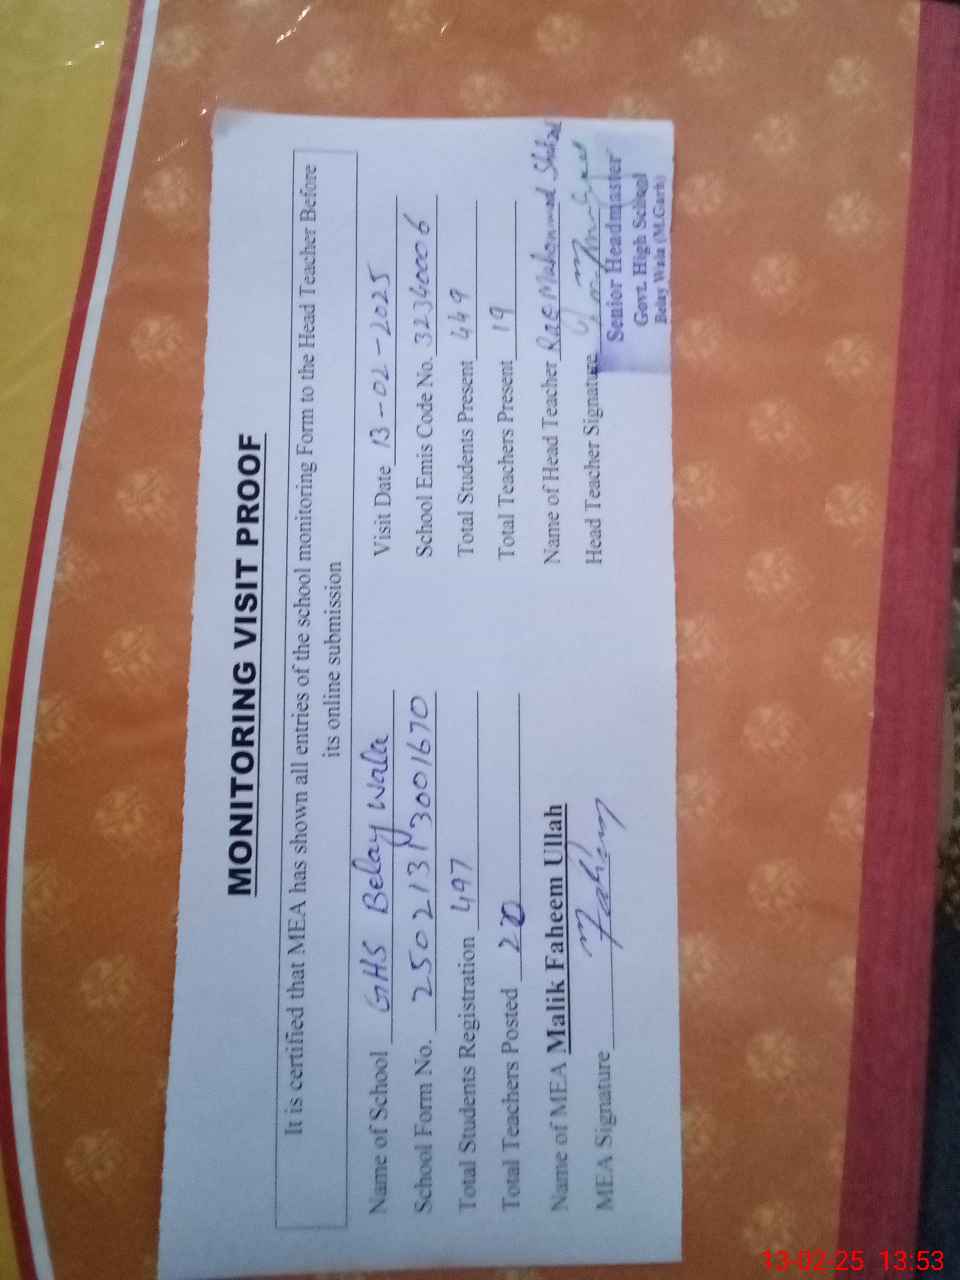 MONITORING VISIT PROOF
It is certified that MEA has shown all entries of the school monitoring Form to the Head Teacher Before
its online submission
Name of School GHS Belay Wala Visit Date 13-02-2025
School Form No. 25021313001670 School Emis Code No. 32340006
Total Students Registration 497 Total Students Present 449
Total Teachers Posted 20 Total Teachers Present 19
Name of MEA Malik Faheem Ullah Name of Head Teacher
MEA Signature Faheem Head Teacher Signature
Senior Headmaster
Govt. High School
Belay Wala (M.Garh)
13-02-25 13:53